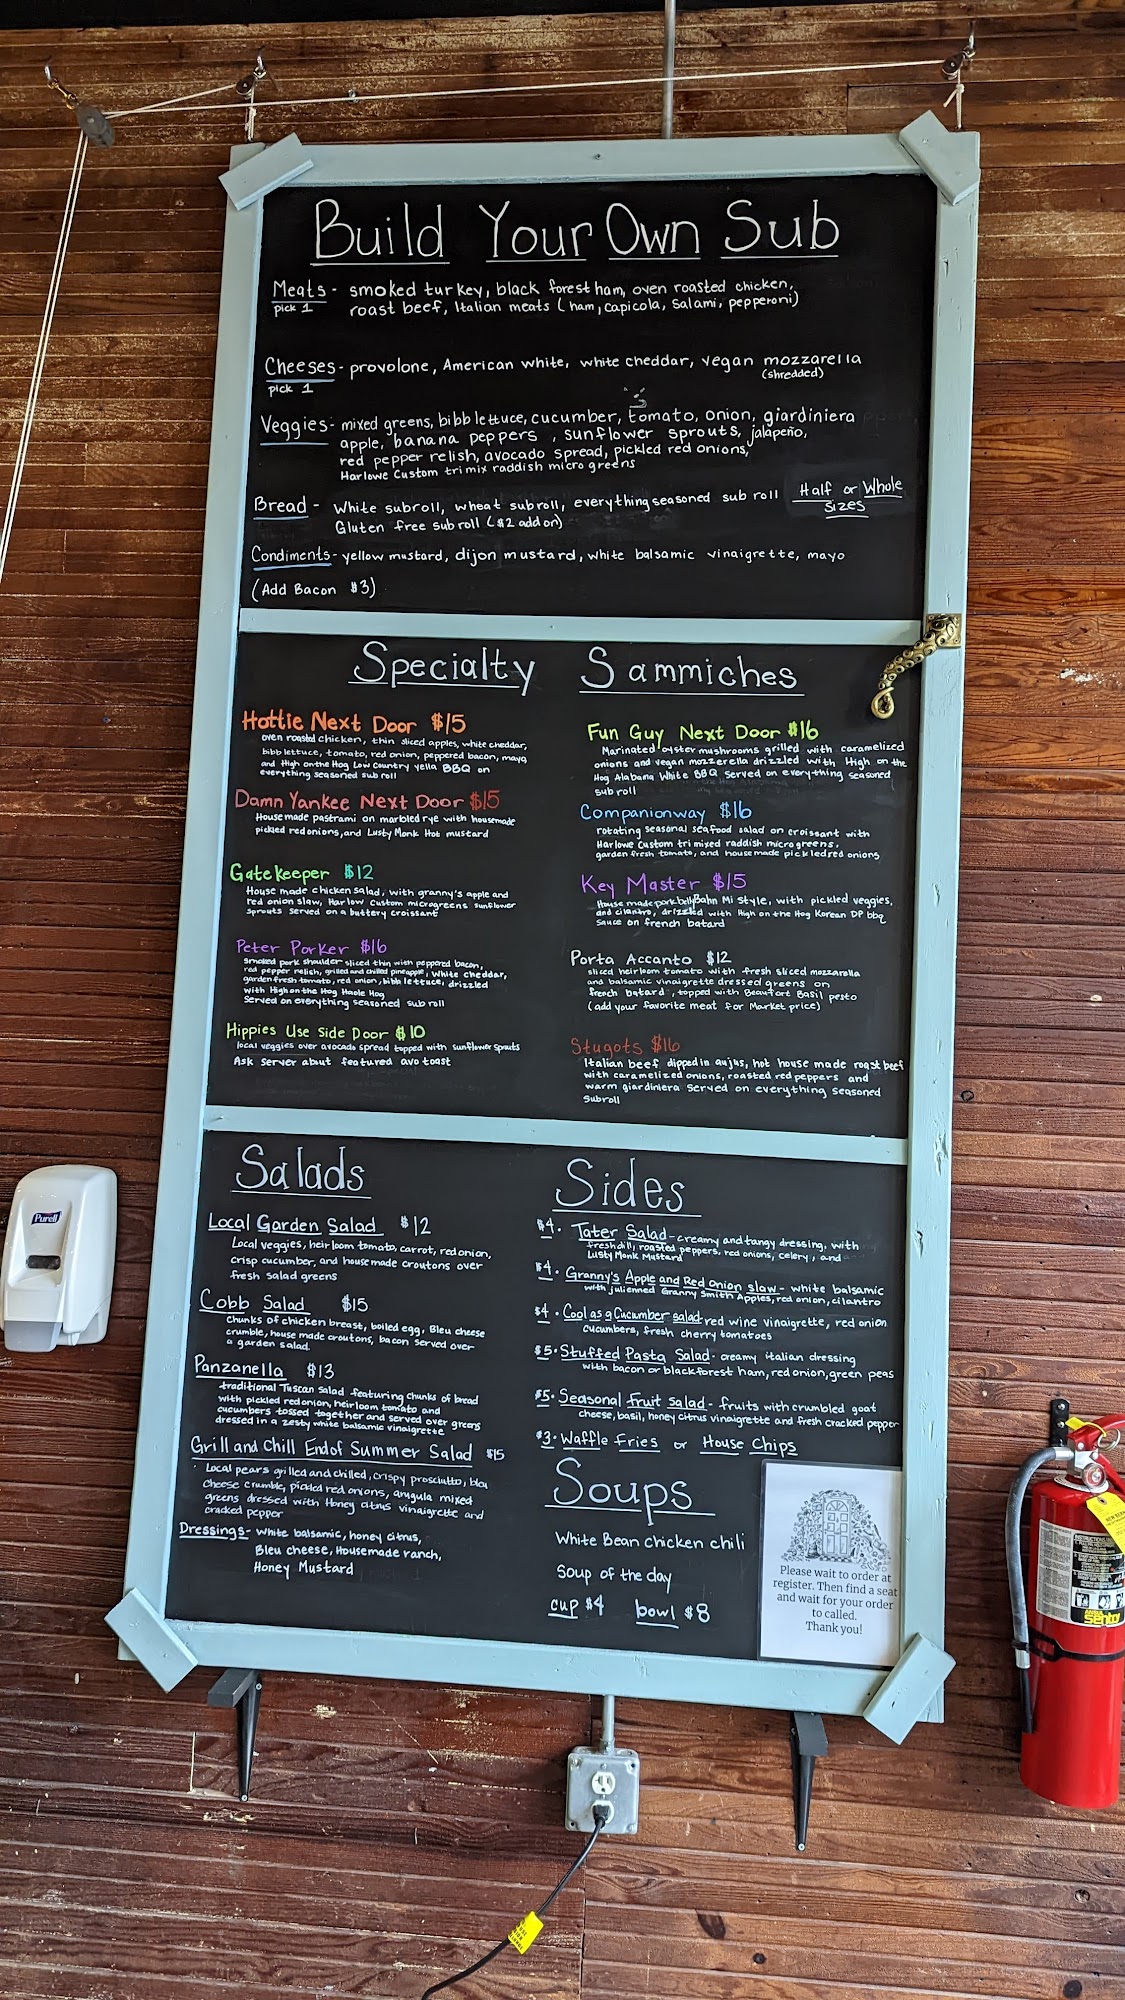 Build Your Own Sub
Meats - smoked turkey, black forest ham, oven roasted chicken,
pick 1 roast beef, Italian meats (ham, capicola, salami, pepperoni)
Cheeses - provolone, American white, white cheddar, vegan mozzarella
pick 1 (shredded)
Veggies - mixed greens, bibb lettuce, cucumber, tomato, onion, giardiniera
apple, banana peppers, sunflower sprouts, jalapeño,
red pepper relish, avocado spread, pickled red onions,
Harlowe Custom tri mix raddish micro greens
Bread - White subroll, wheat subroll, everything seasoned sub roll Half or Whole
Gluten free sub roll ($2 add on) Sizes
Condiments - yellow mustard, dijon mustard, white balsamic vinaigrette, mayo
(Add Bacon $3)
Specialty Sammiches
Hottie Next Door $15
oven roasted chicken, thin sliced apples, white cheddar,
bibb lettuce, tomato, red onion, peppered bacon, mayo,
and High on the Hog Low Country yella BBQ on
everything seasoned sub roll
Damn Yankee Next Door $15
House made pastrami on marbled rye with housemade
pickled red onions, and Lusty Monk Hot mustard
Gatekeeper $12
House made chicken salad, with granny's apple and
red onion slaw, Harlow Custom microgreens sunflower
sprouts served on a buttery croissant
Peter Porker $16
Smoked pork shoulder sliced thin with peppered bacon,
red pepper relish, grilled and chilled pineapple, white cheddar,
garden fresh tomato, red onion, bibb lettuce, drizzled
with High on the Hog Haole Hog
Served on everything seasoned sub roll
Hippies Use Side Door $10
local veggies over avocado spread topped with sunflower sprouts
Ask server about featured avo toast
Fun Guy Next Door $16
Marinated oyster mushrooms grilled with caramelized
onions and vegan mozzerella drizzled with High on the
Hog Alabama White BBQ served on everything seasoned
sub roll
Companionway $16
rotating seasonal seafood salad on croissant with
Harlowe Custom tri mixed raddish microgreens,
garden fresh tomato, and housemade pickled red onions
Key Master $15
House made pork belly Bahn Mi Style, with pickled veggies,
and cilantro, drizzled with High on the Hog Korean DP bbq
sauce on french batard
Porta Accanto $12
sliced heirloom tomato with fresh sliced mozzarella
and balsamic vinaigrette dressed greens on
french batard, topped with Beaufort Basil pesto
(add your favorite meat for Market price)
Stugots $16
Italian beef dipped in aujus, hot house made roast beef
with caramelized onions, roasted red peppers and
warm giardiniera served on everything seasoned
subroll
Salads
Local Garden Salad $12
Local veggies, heirloom tomato, carrot, red onion,
crisp cucumber, and housemade croutons over
fresh salad greens
Cobb Salad $15
Chunks of chicken breast, boiled egg, Bleu cheese
crumble, house made croutons, bacon served over
a garden salad.
Panzanella $13
traditional Tuscan salad featuring chunks of bread
with pickled red onion, heirloom tomato and
cucumbers tossed together and served over greens
dressed in a zesty white balsamic vinaigrette
Grill and Chill End of Summer Salad $15
Local pears grilled and chilled, crispy prosciutto, bleu
cheese crumble, pickled red onions, arugula mixed
greens dressed with Honey citrus vinaigrette and
cracked pepper
Dressings - White balsamic, honey citrus,
Bleu cheese, Housemade ranch,
Honey Mustard
Sides
$4 · Tater Salad - creamy and tangy dressing, with
fresh dill, roasted peppers, red onions, celery, and
Lusty Monk Mustard
$4 · Granny's Apple and Red Onion slaw - white balsamic
with julienned Granny Smith Apples, red onion, cilantro
$4 · Cool as a Cucumber salad - red wine vinaigrette, red onion
cucumbers, fresh cherry tomatoes
$5 · Stuffed Pasta Salad - creamy italian dressing
with bacon or black forest ham, red onion, green peas
$5 · Seasonal Fruit salad - fruits with crumbled goat
cheese, basil, honey citrus vinaigrette and fresh cracked pepper
$3 · Waffle Fries or House Chips
Soups
White Bean chicken chili
Soup of the day
cup $4 bowl $8
Please wait to order at
register. Then find a seat
and wait for your order
to called.
Thank you!
Purell
ANSUL
Sentry